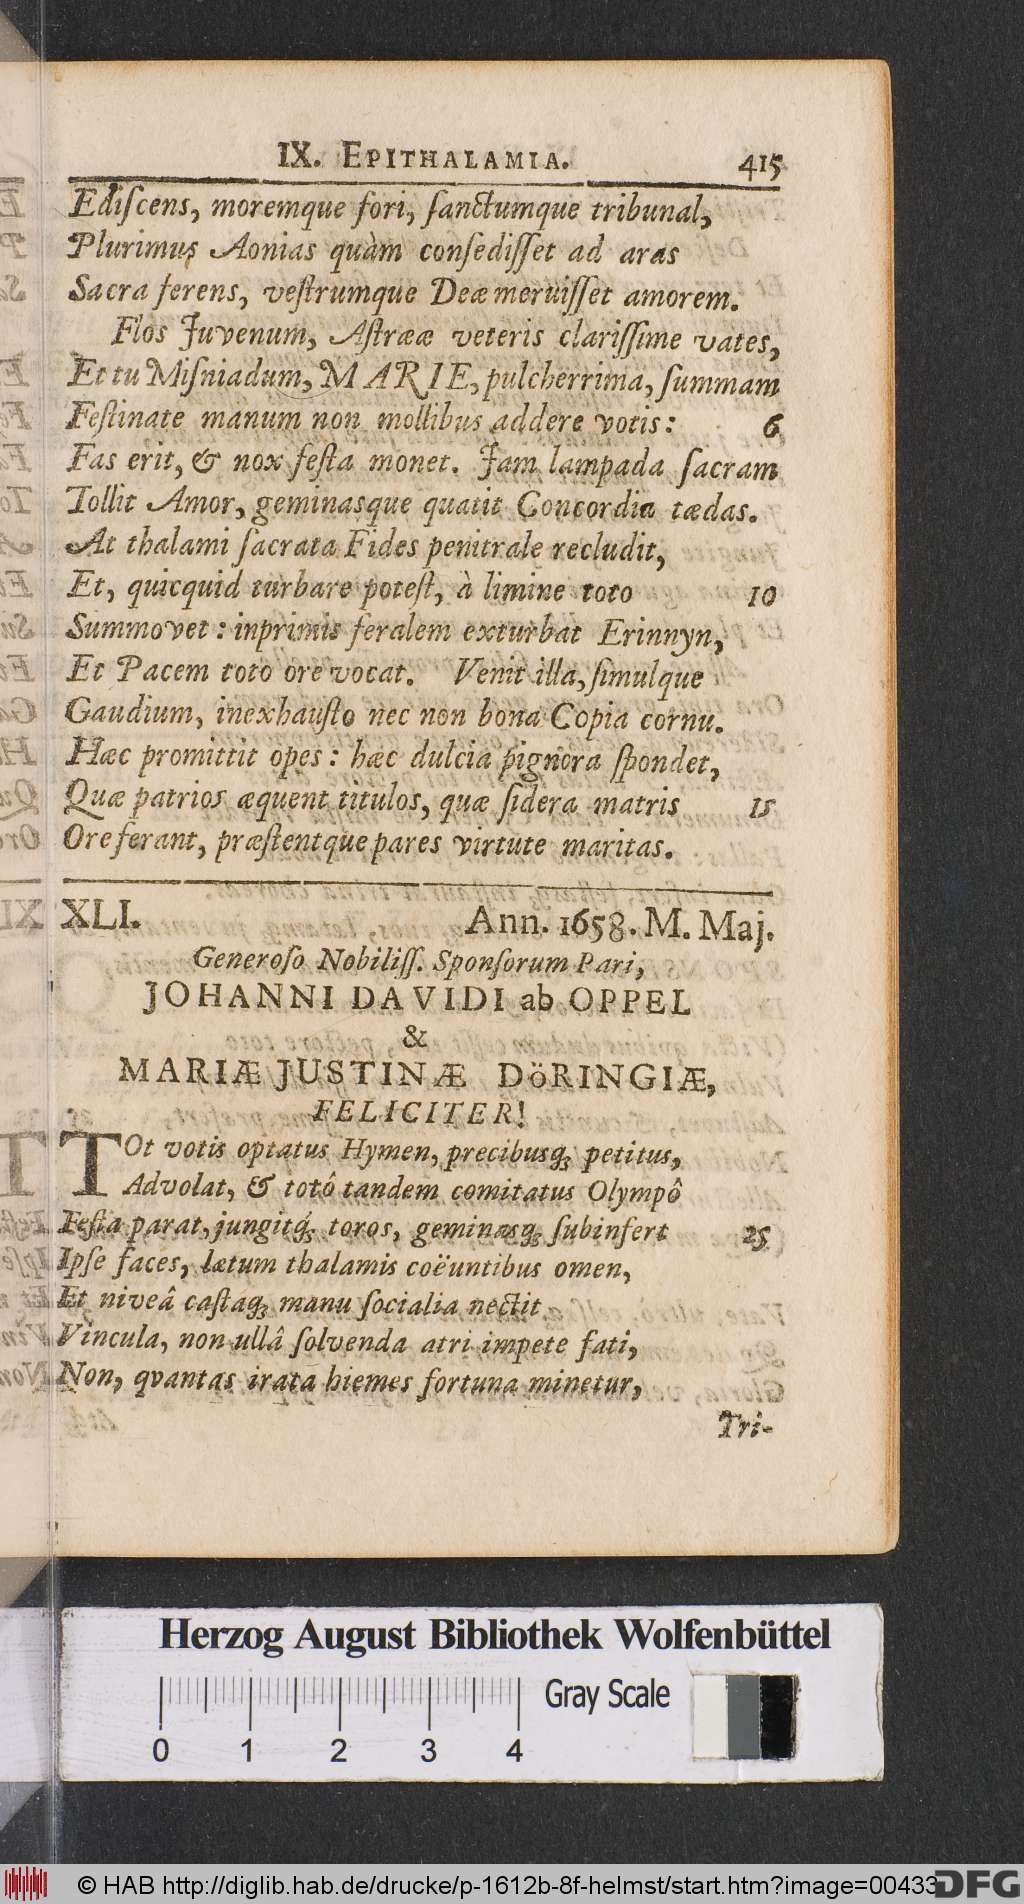 IX. EPITHALAMIA. 415
Ediſcens, moremque fori, ſanctumque tribunal,
Plurimus Aonias quàm conſediſſet ad aras
Sacra ferens, veſtrumque Deæ meruiſſet amorem.
Flos Juvenum, Aſtrææ veteris clariſſime vates,
Et tu Miſniadum, MARIE, pulcherrima, ſummam
Feſtinate manum non mollibus addere votis: 6
Fas erit, & nox feſta monet. Jam lampada ſacram
Tollit Amor, geminasque quatit Concordia tædas.
At thalami ſacrata Fides penitrale recludit,
Et, quicquid turbare poteſt, à limine toto 10
Summovet: inprimis feralem exturbat Erinnyn,
Et Pacem toto ore vocat. Venit illa, ſimulque
Gaudium, inexhauſto nec non bona Copia cornu.
Hæc promittit opes: hæc dulcia pignora ſpondet,
Quæ patrios æquent titulos, quæ ſidera matris 15
Ore ferant, præſtentque pares virtute maritas.
XLI. Ann. 1658. M. Maj.
Generoſo Nobiliſſ. Sponſorum Pari,
JOHANNI DAVIDI ab OPPEL
&
MARIÆ JUSTINÆ DöRINGIÆ,
FELICITER!
TOt votis optatus Hymen, precibusq́; petitus,
Advolat, & totô tandem comitatus Olympô
Feſta parat, jungitq́; toros, geminasq́; ſubinfert 25
Ipſe faces, lætum thalamis coëuntibus omen,
Et niveâ caſtaq́; manu ſocialia nectit
Vincula, non ullâ ſolvenda atri impete fati,
Non, qvantas irata hiemes fortuna minetur,
Tri-
Herzog August Bibliothek Wolfenbüttel
Gray Scale
0 1 2 3 4
© HAB http://diglib.hab.de/drucke/p-1612b-8f-helmst/start.htm?image=00433
DFG